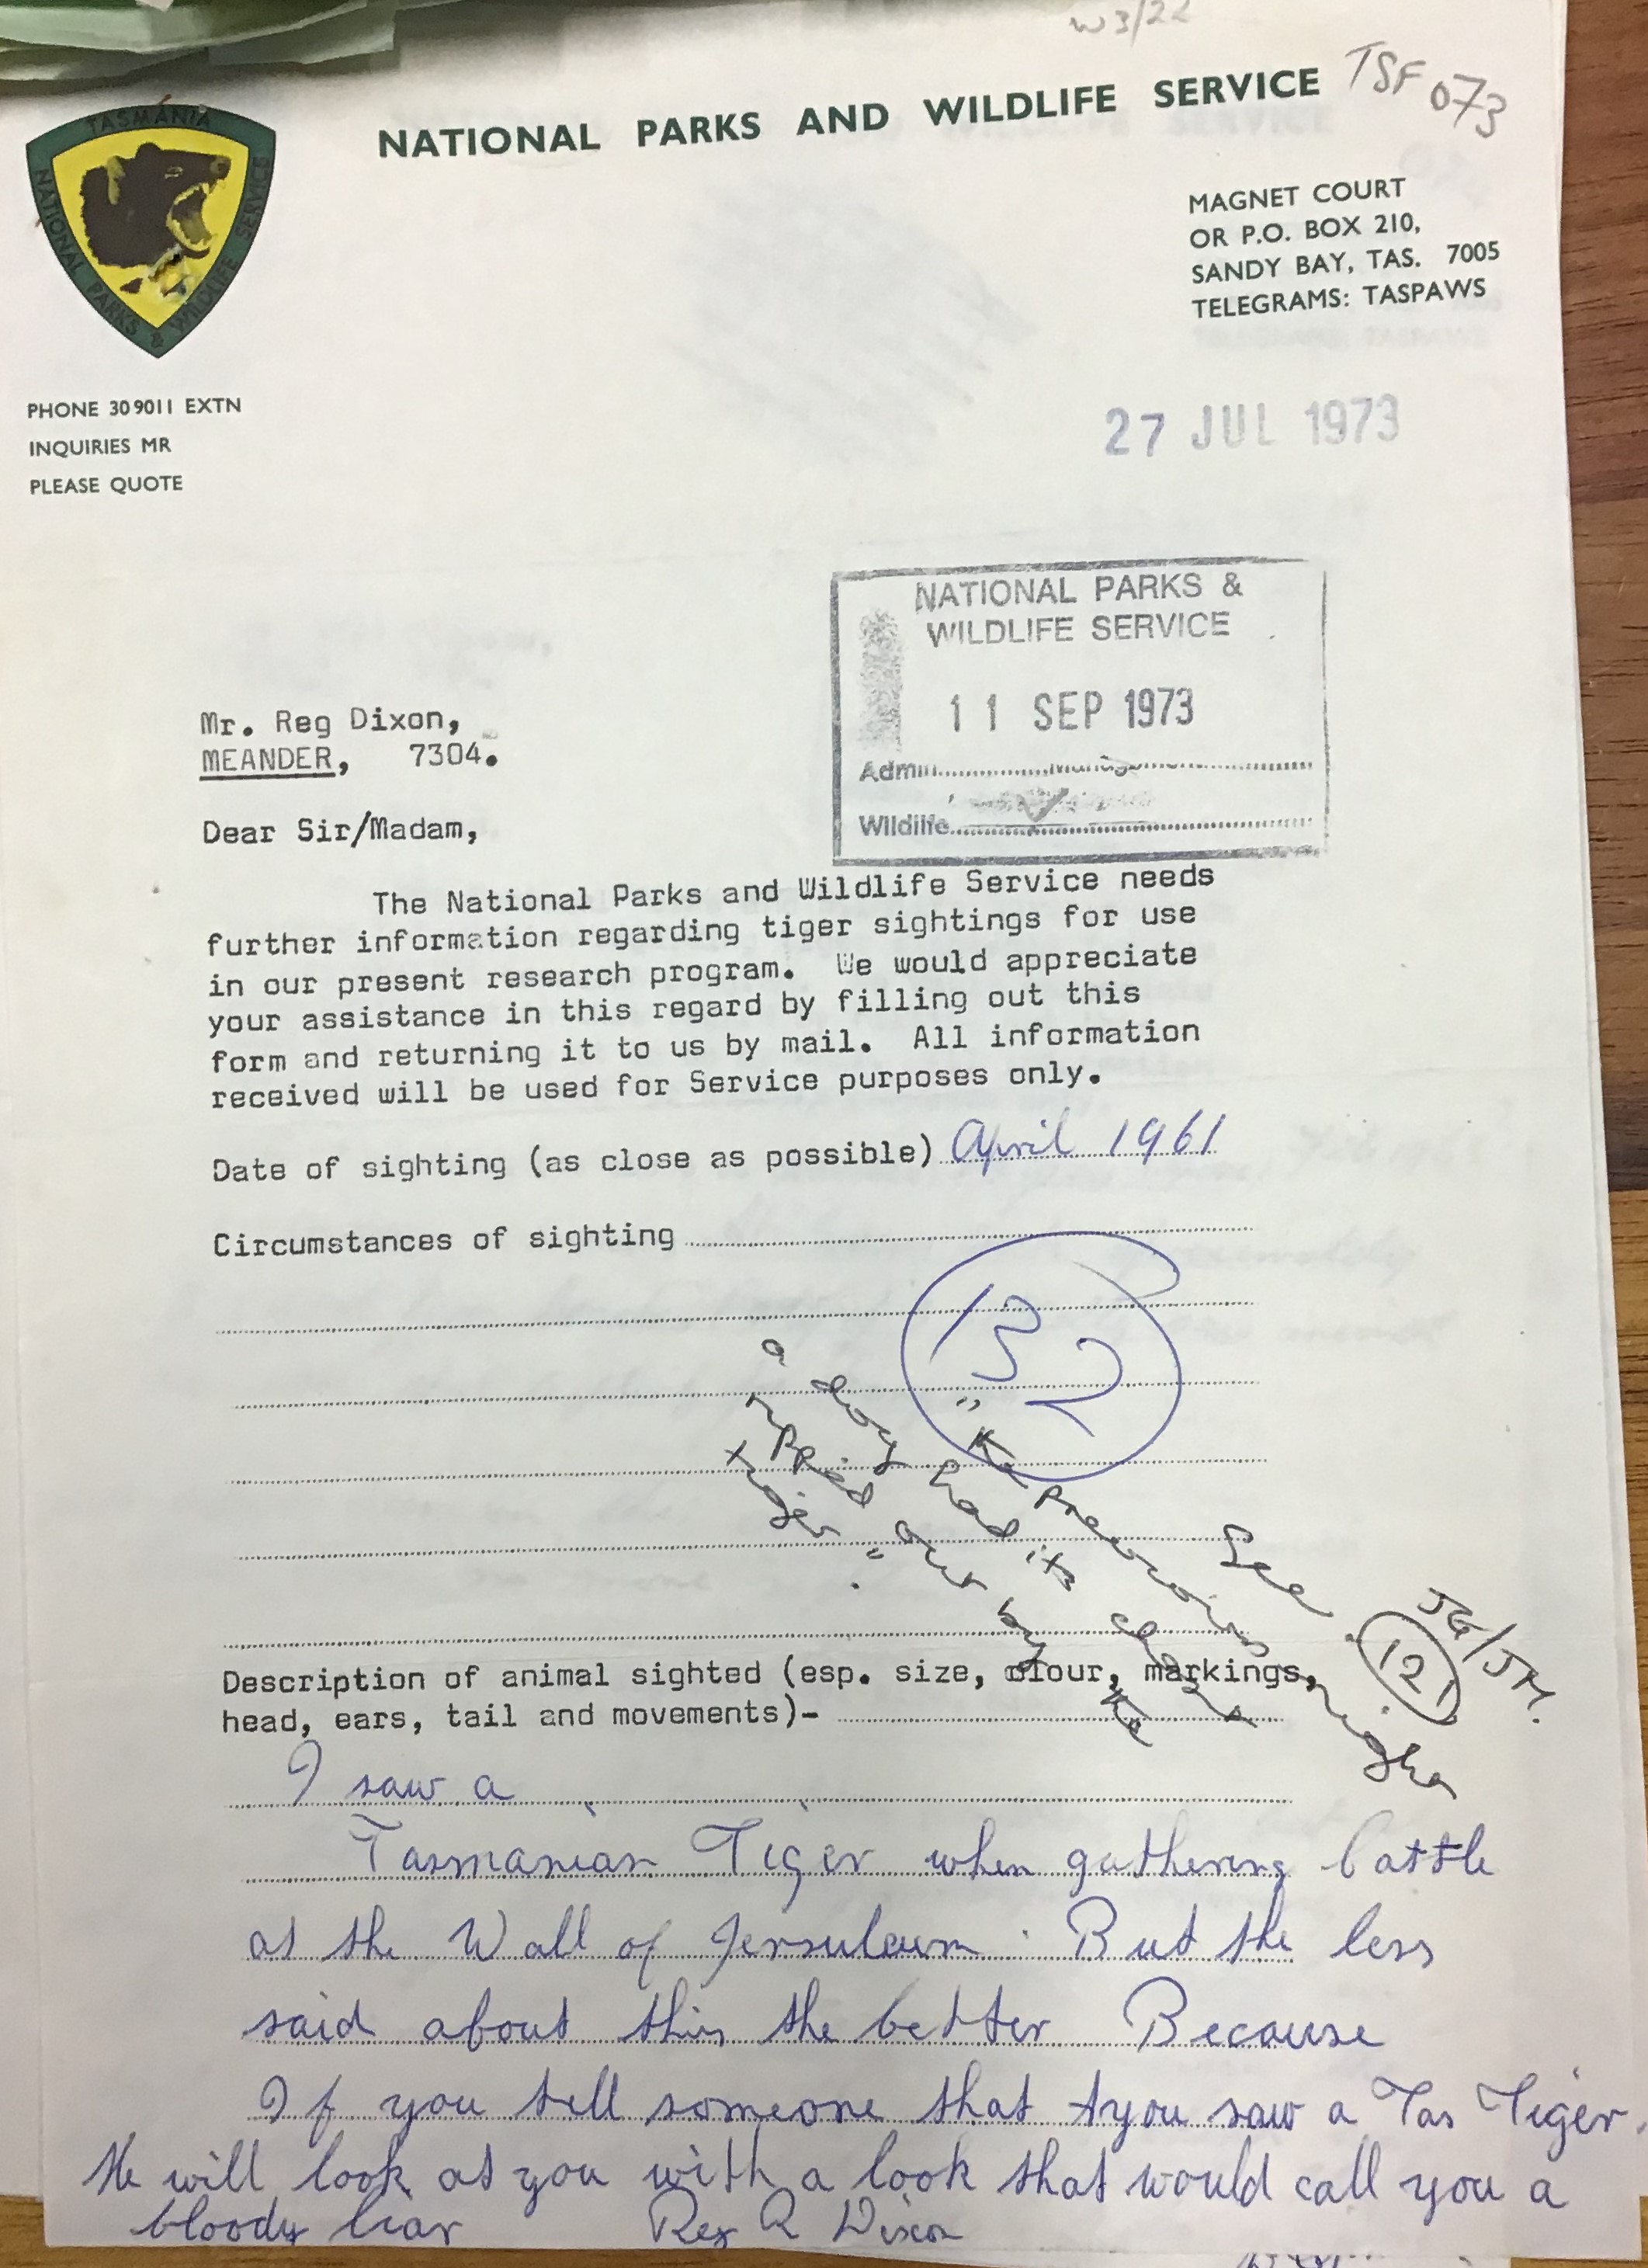 W3/22
TSF 073
TASMANIA
NATIONAL PARKS & WILDLIFE SERVICE
NATIONAL PARKS AND WILDLIFE SERVICE
MAGNET COURT
OR P.O. BOX 210,
SANDY BAY, TAS. 7005
TELEGRAMS: TASPAWS
PHONE 30 9011 EXTN
INQUIRIES MR
PLEASE QUOTE
27 JUL 1973
NATIONAL PARKS &
WILDLIFE SERVICE
11 SEP 1973
Admin. Management
Wildlife
Mr. Reg Dixon,
MEANDER, 7304.
Dear Sir/Madam,
The National Parks and Wildlife Service needs
further information regarding tiger sightings for use
in our present research program. We would appreciate
your assistance in this regard by filling out this
form and returning it to us by mail. All information
received will be used for Service purposes only.
Date of sighting (as close as possible) April 1961
Circumstances of sighting
132
See 12 JG/JM.
"The previous night
a dog had its chest
ripped out by the
tiger".
Description of animal sighted (esp. size, olour, markings,
head, ears, tail and movements)-
I saw a
Tasmanian Tiger when gathering Cattle
at the Wall of Jersuleum. But the less
said about this the better Because
If you tell someone that you saw a Tas Tiger.
He will look at you with a look that would call you a
bloody liar Reg R Dixon